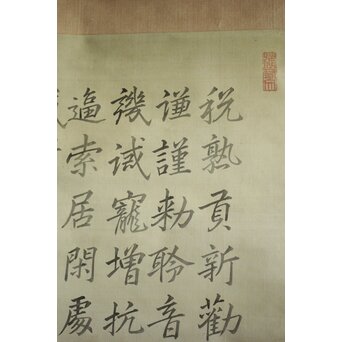 税熟貢新勸
謙謹勑聆音
譏誡寵增抗
逼索居閑處